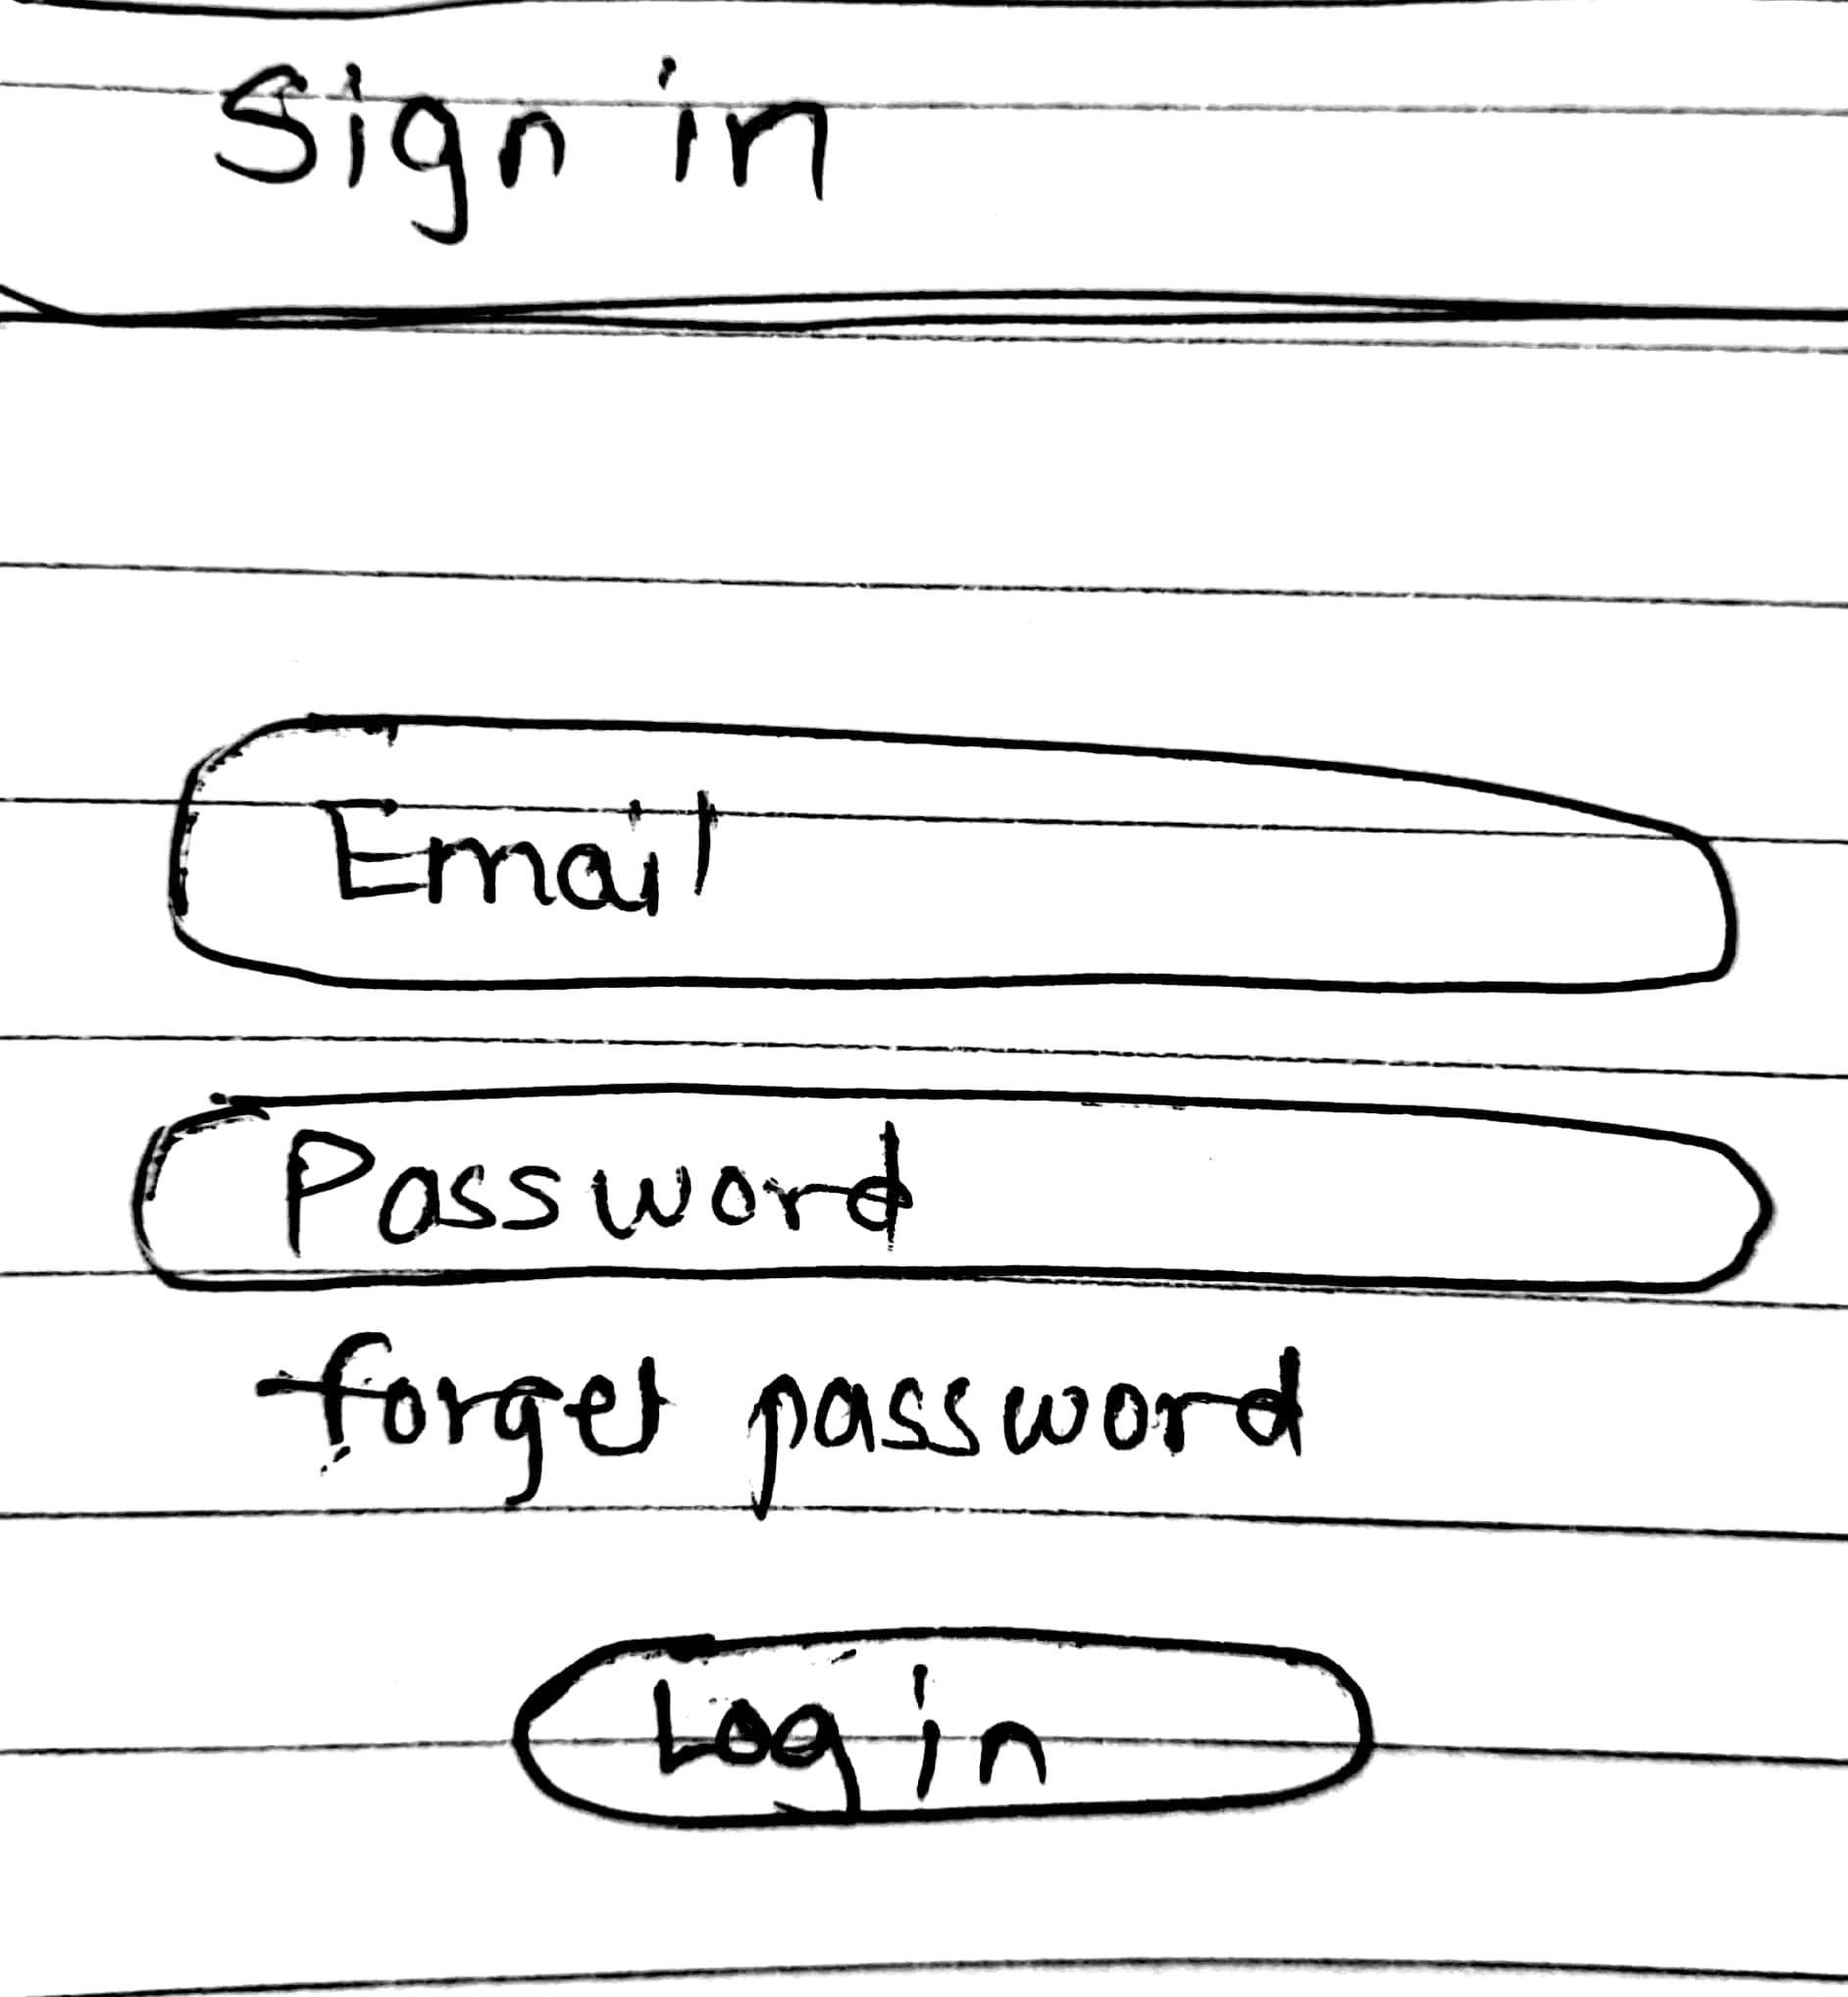 Sign in
Email
Password
forget password
Log in